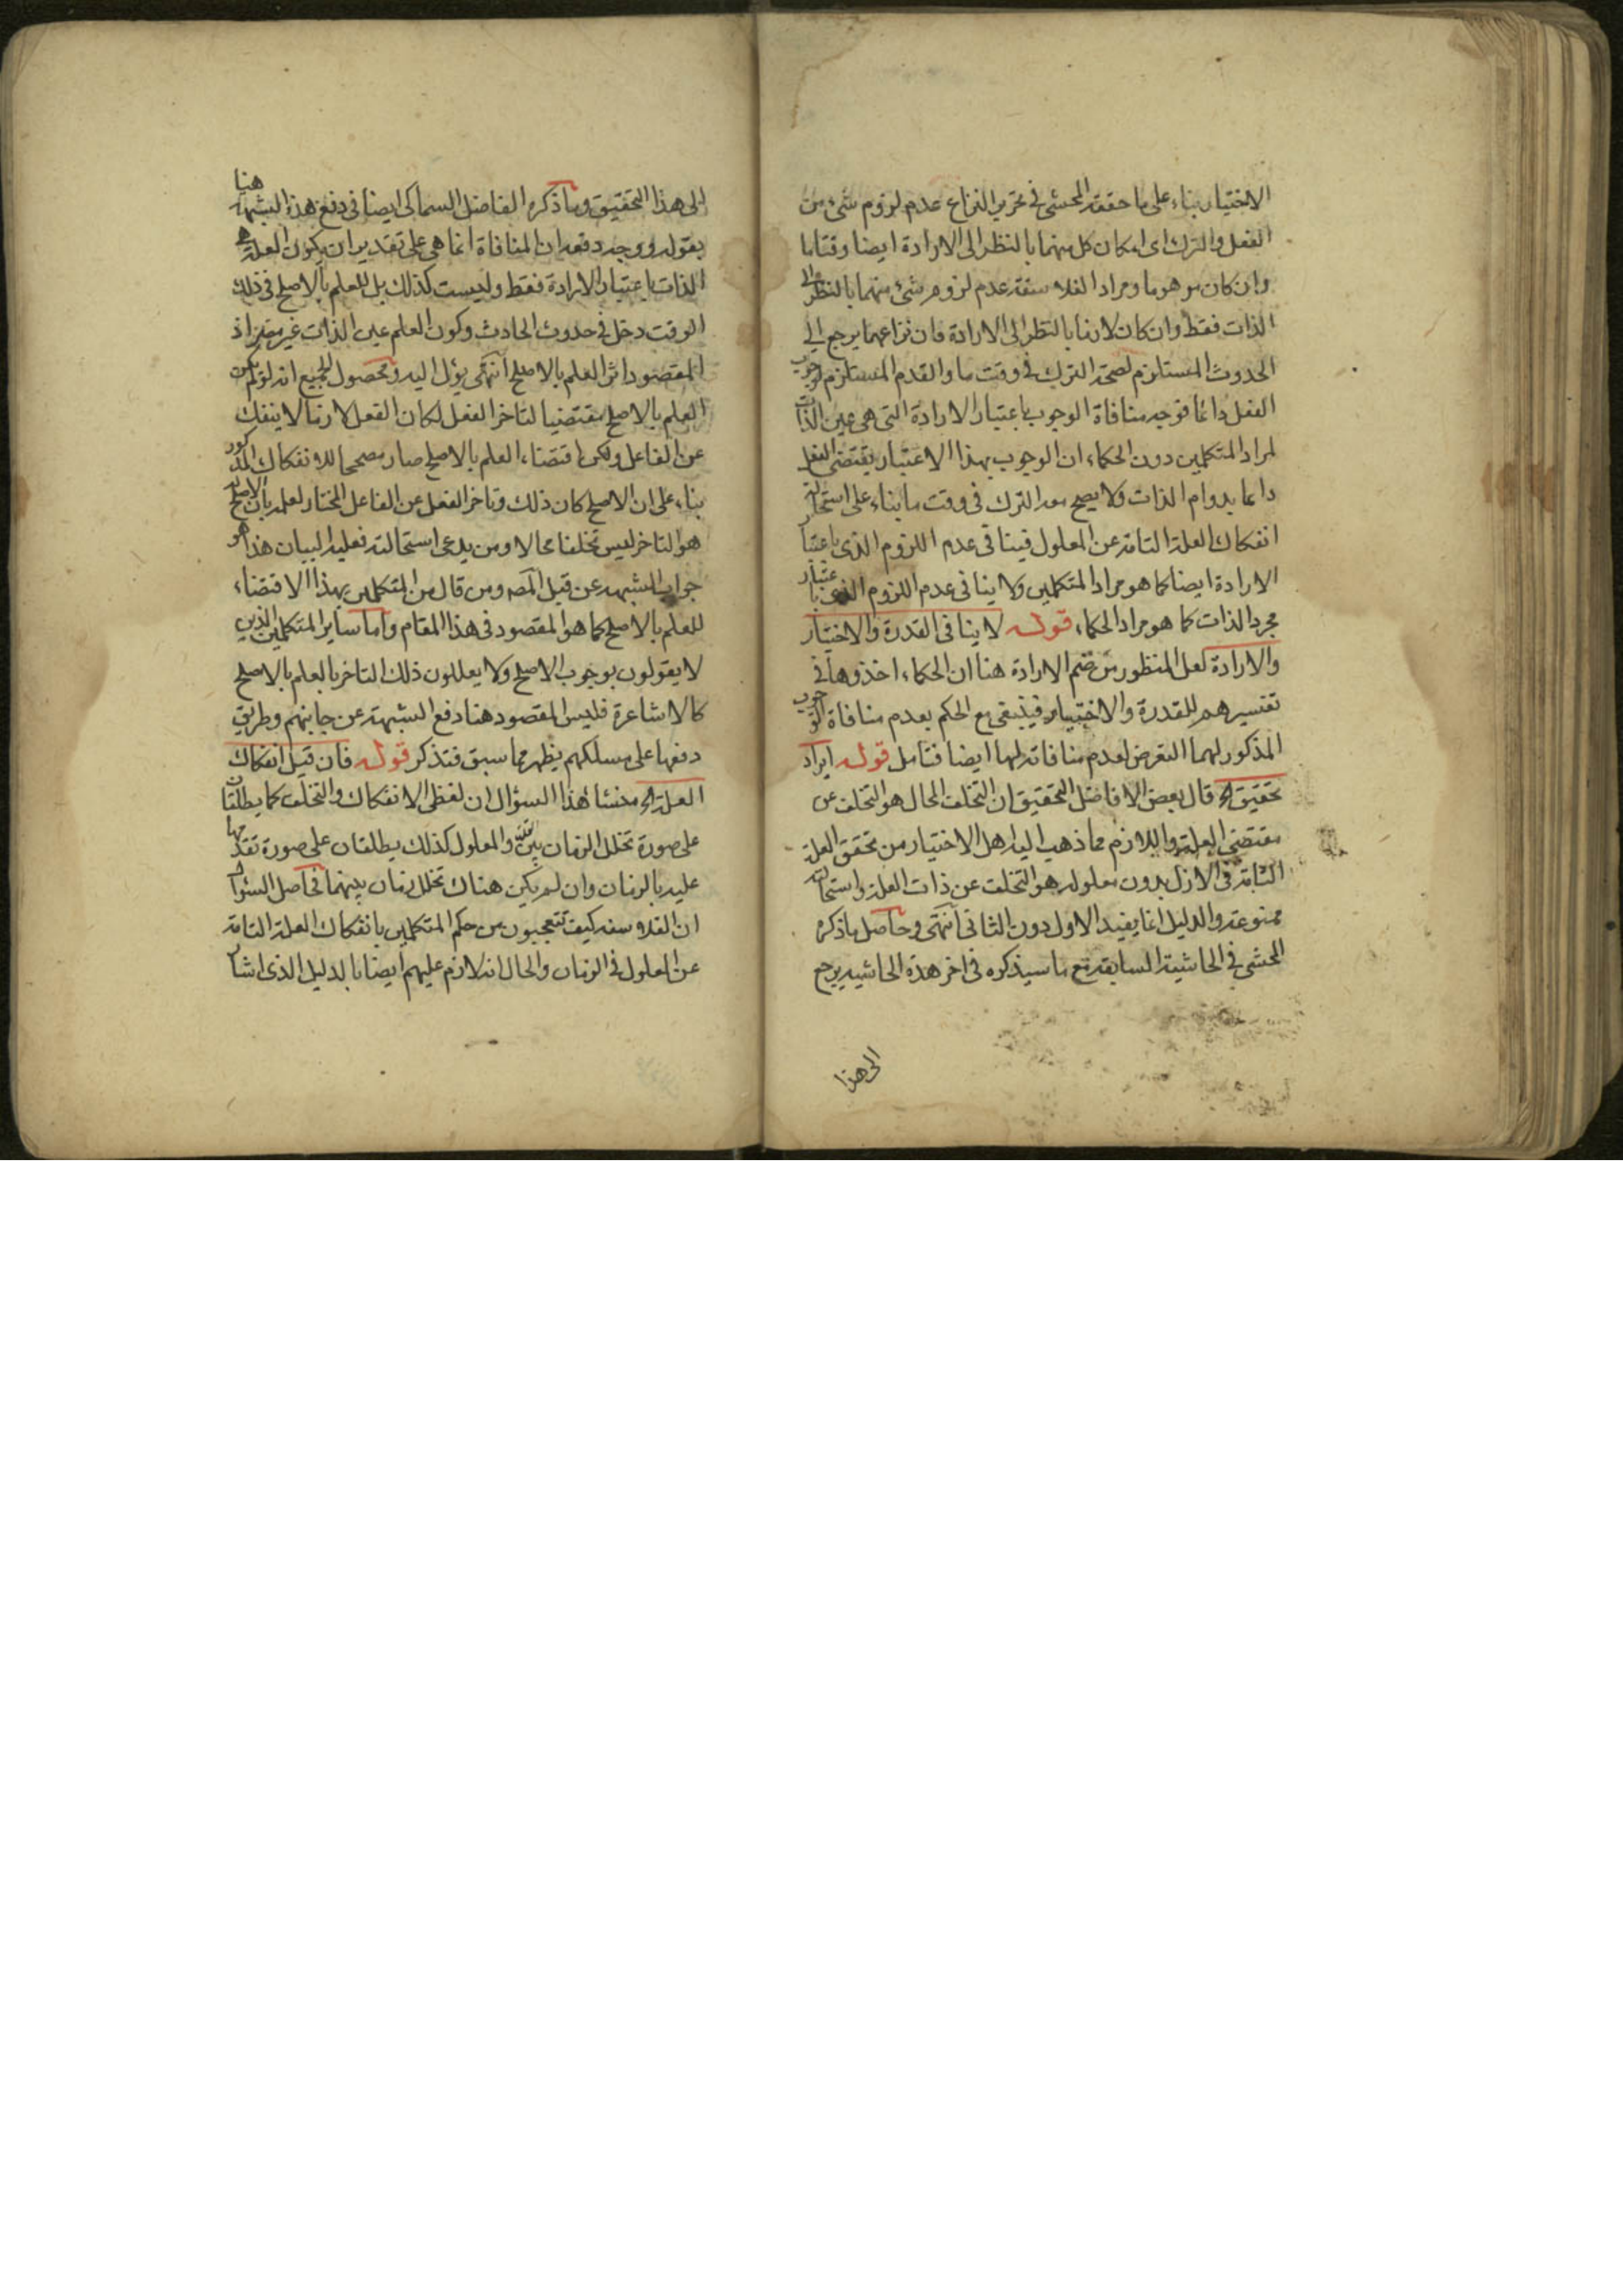 الاختيار بناء على ما حققه المحشي في تحرير النزاع عدم لزوم شيء من
الفعل والترك اى امكان كل منهما بالنظر الى الارادة ايضا وقتا ما
وان كان موهوما ومراد الفلاسفة عدم لزوم شئ منهما بالنظر الى
الذات فقط وان كان لازما بالنظر الى الارادة فان نزاعهما يرجع الى
الحدوث المستلزم لصحة الترك في وقت ما والقدم المستلزم لوجوب
الفعل دائما فوجه منافاة الوجوب باعتبار الارادة التى هى عين الذات
لمراد المتكلمين دون الحكماء ان الوجوب بهذا الاعتبار يقتضى الفعل
دائما بدوام الذات ولا يصح معه الترك فى وقت ما بناء على استحالة
انفكاك العلة التامة عن المعلول فينافى عدم اللزوم الذى باعتبار
الارادة ايضا كما هو مراد المتكلمين ولا ينافى عدم اللزوم الذى باعتبار
مجرد الذات كما هو مراد الحكماء قوله لا ينافى القدرة والاختيار
والارادة لعل المنظور من ضم الارادة هنا ان الحكماء اخذوها فى
تفسيرهم للقدرة والاختيار فينبغى مع الحكم بعدم منافاة الوجوب
المذكور لهما التعرض لعدم منافاته لها ايضا فتامل قوله ايراد
تحقيق الخ قال بعض الافاضل التحقيق ان التخلف المحال هو التخلف عن
مقتضى العلة واللازم مما ذهب اليه اهل الاختيار من تحقق العلة
التامة فى الازل بدون معلوله هو التخلف عن ذات العلة واستحالته
ممنوعة والدليل انما يفيد الاول دون الثانى انتهى وحاصل ما ذكره
المحشى فى الحاشية السابقة مع ما سيذكره فى اخر هذه الحاشيه يرجع
الى هذا
الى هذا التحقيق وما ذكره الفاضل السماكى ايضا فى دفع هذه الشبهة هنا
بقوله ووجه دفعه ان المنافاة انما هى على تقدير ان يكون العلة هى
الذات باعتبار الارادة فقط وليست كذلك بل للعلم بالاصلح فى ذلك
الوقت دخل فى حدوث الحادث وكون العلم عين الذات غير مضر اذ
المقصود اثر العلم بالاصلح انتهى يؤل اليه ومحصول الجميع انه لو لم يكن
العلم بالاصلح مقتضيا لتاخر الفعل لكان الفعل لازما لا ينفك
عن الفاعل ولكن اقتضاء العلم بالاصلح صار مصححا للانفكاك المذكور
بناء على ان الاصلح كان ذلك وتاخر الفعل عن الفاعل المختار لعلمه بان الاصلح
هو التاخر ليس تخلفا محالا ومن يدعى استحالته فعليه البيان هذا هو
جواب الشبهة عن قبل المص ومن قال من المتكلمين بهذا الاقتضاء
للعلم بالاصلح كما هو المقصود فى هذا المقام واما ساير المتكلمين الذين
لا يقولون بوجوب الاصلح ولا يعللون ذلك التاخر بالعلم بالاصلح
كالاشاعرة فليس المقصود هنا دفع الشبهة عن جانبهم وطريق
دفعها على مسلكهم يظهر مما سبق فتذكر قوله فان قيل انفكاك
العلة الخ منشا هذا السؤال ان لفظى الانفكاك والتخلف كما يطلقان
على صورة تخلل الزمان بين العلة والمعلول كذلك يطلقان على صورة تقدمها
عليه بالزمان وان لم يكن هناك تخلل زمان بينهما فحاصل السؤال
ان الفلاسفه كيف تتعجبون من حكم المتكلمين بانفكاك العلة التامة
عن المعلول فى الزمان والحال انه لازم عليهم ايضا بالدليل الذى اشار